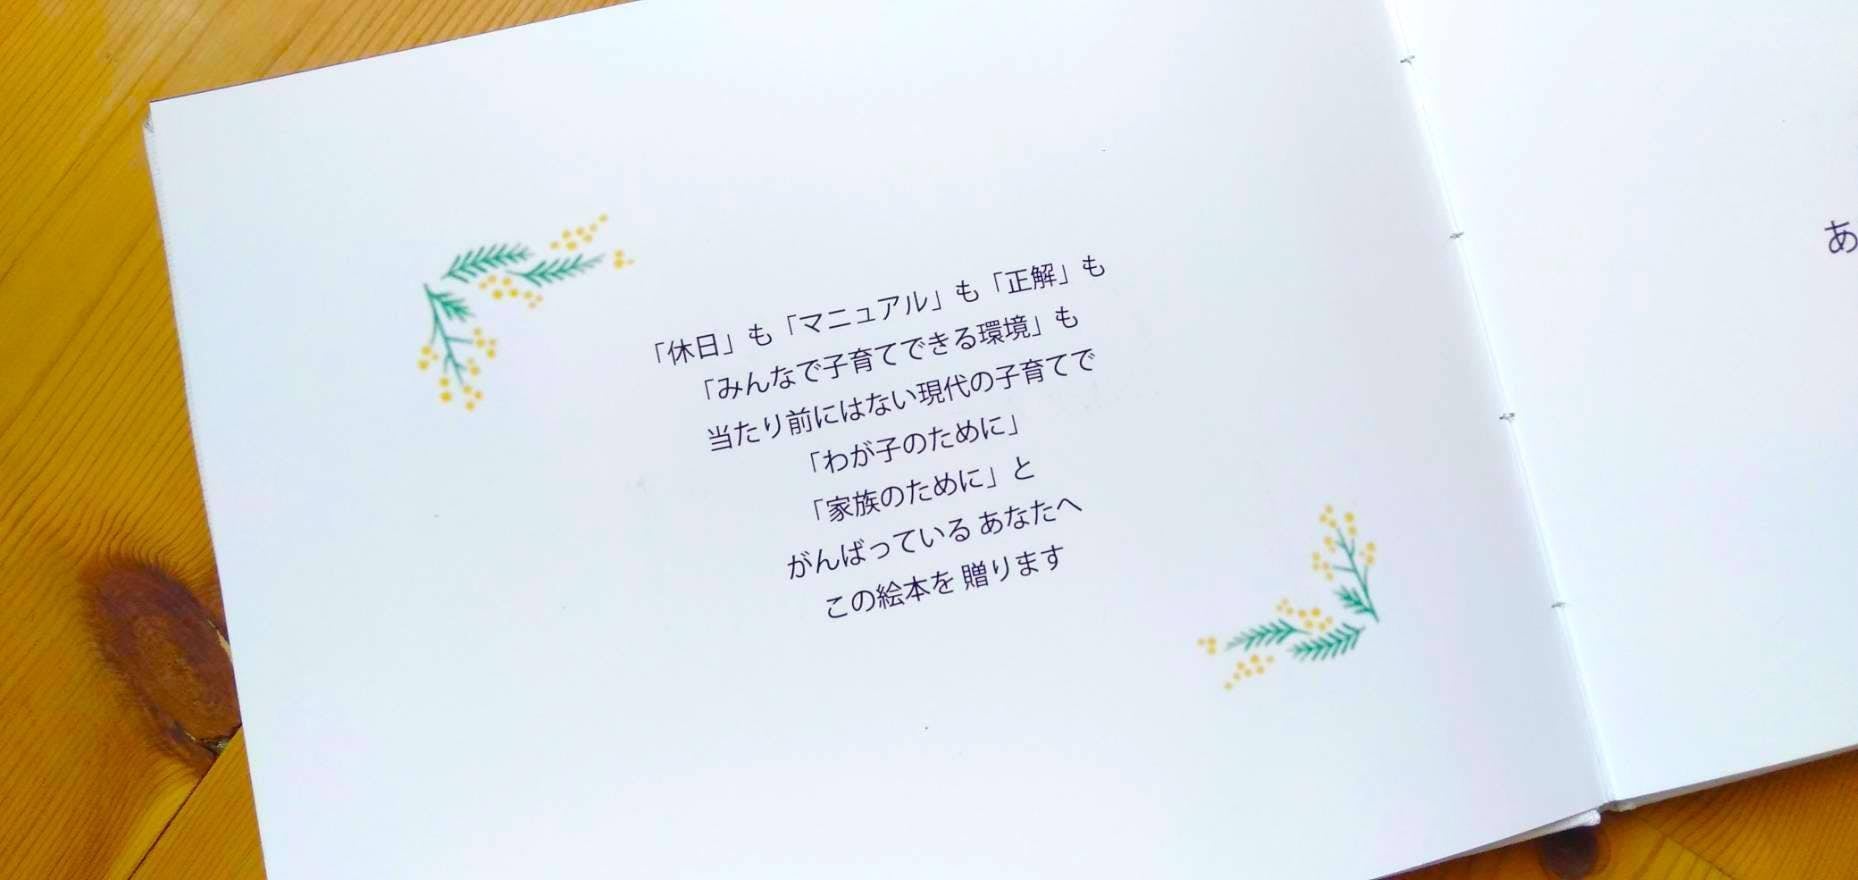 「休日」も「マニュアル」も「正解」も
「みんなで子育てできる環境」も
当たり前にはない現代の子育てで
「わが子のために」
「家族のために」と
がんばっている あなたへ
この絵本を 贈ります
あ